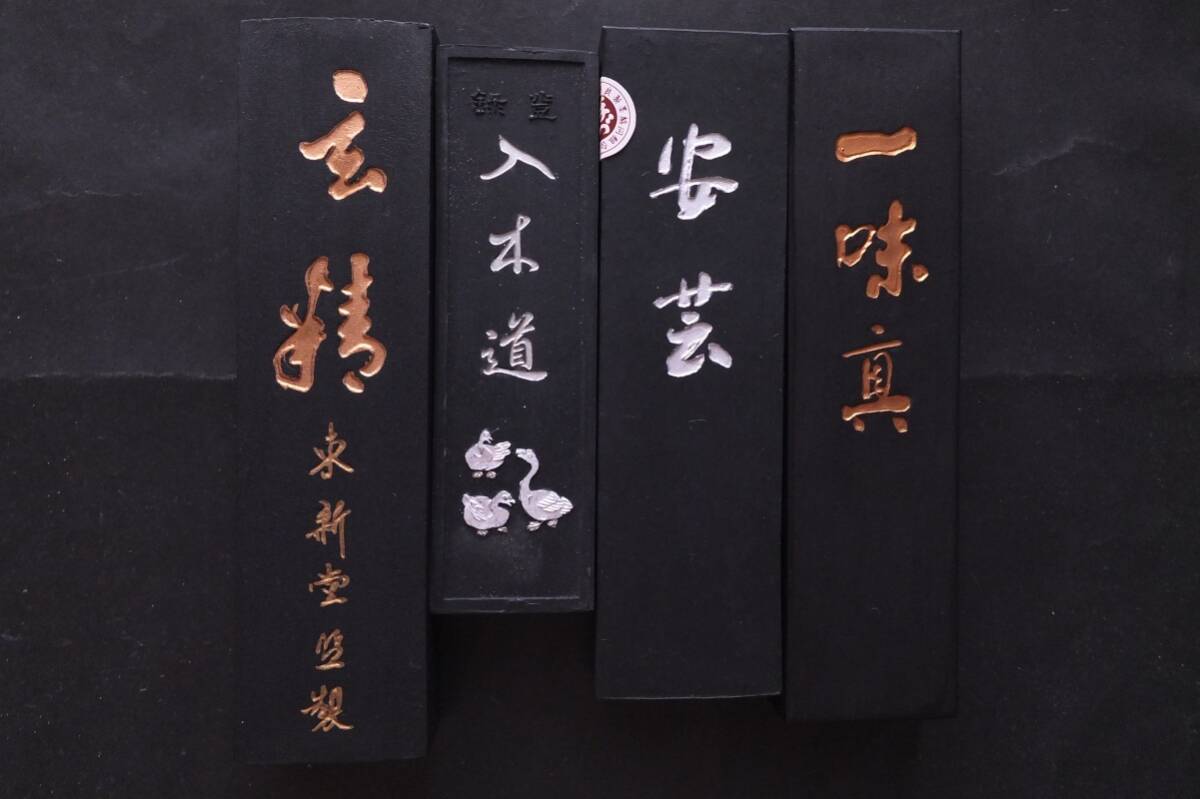 玄精
東新堂監製
登録
入木道
安芸
一味真